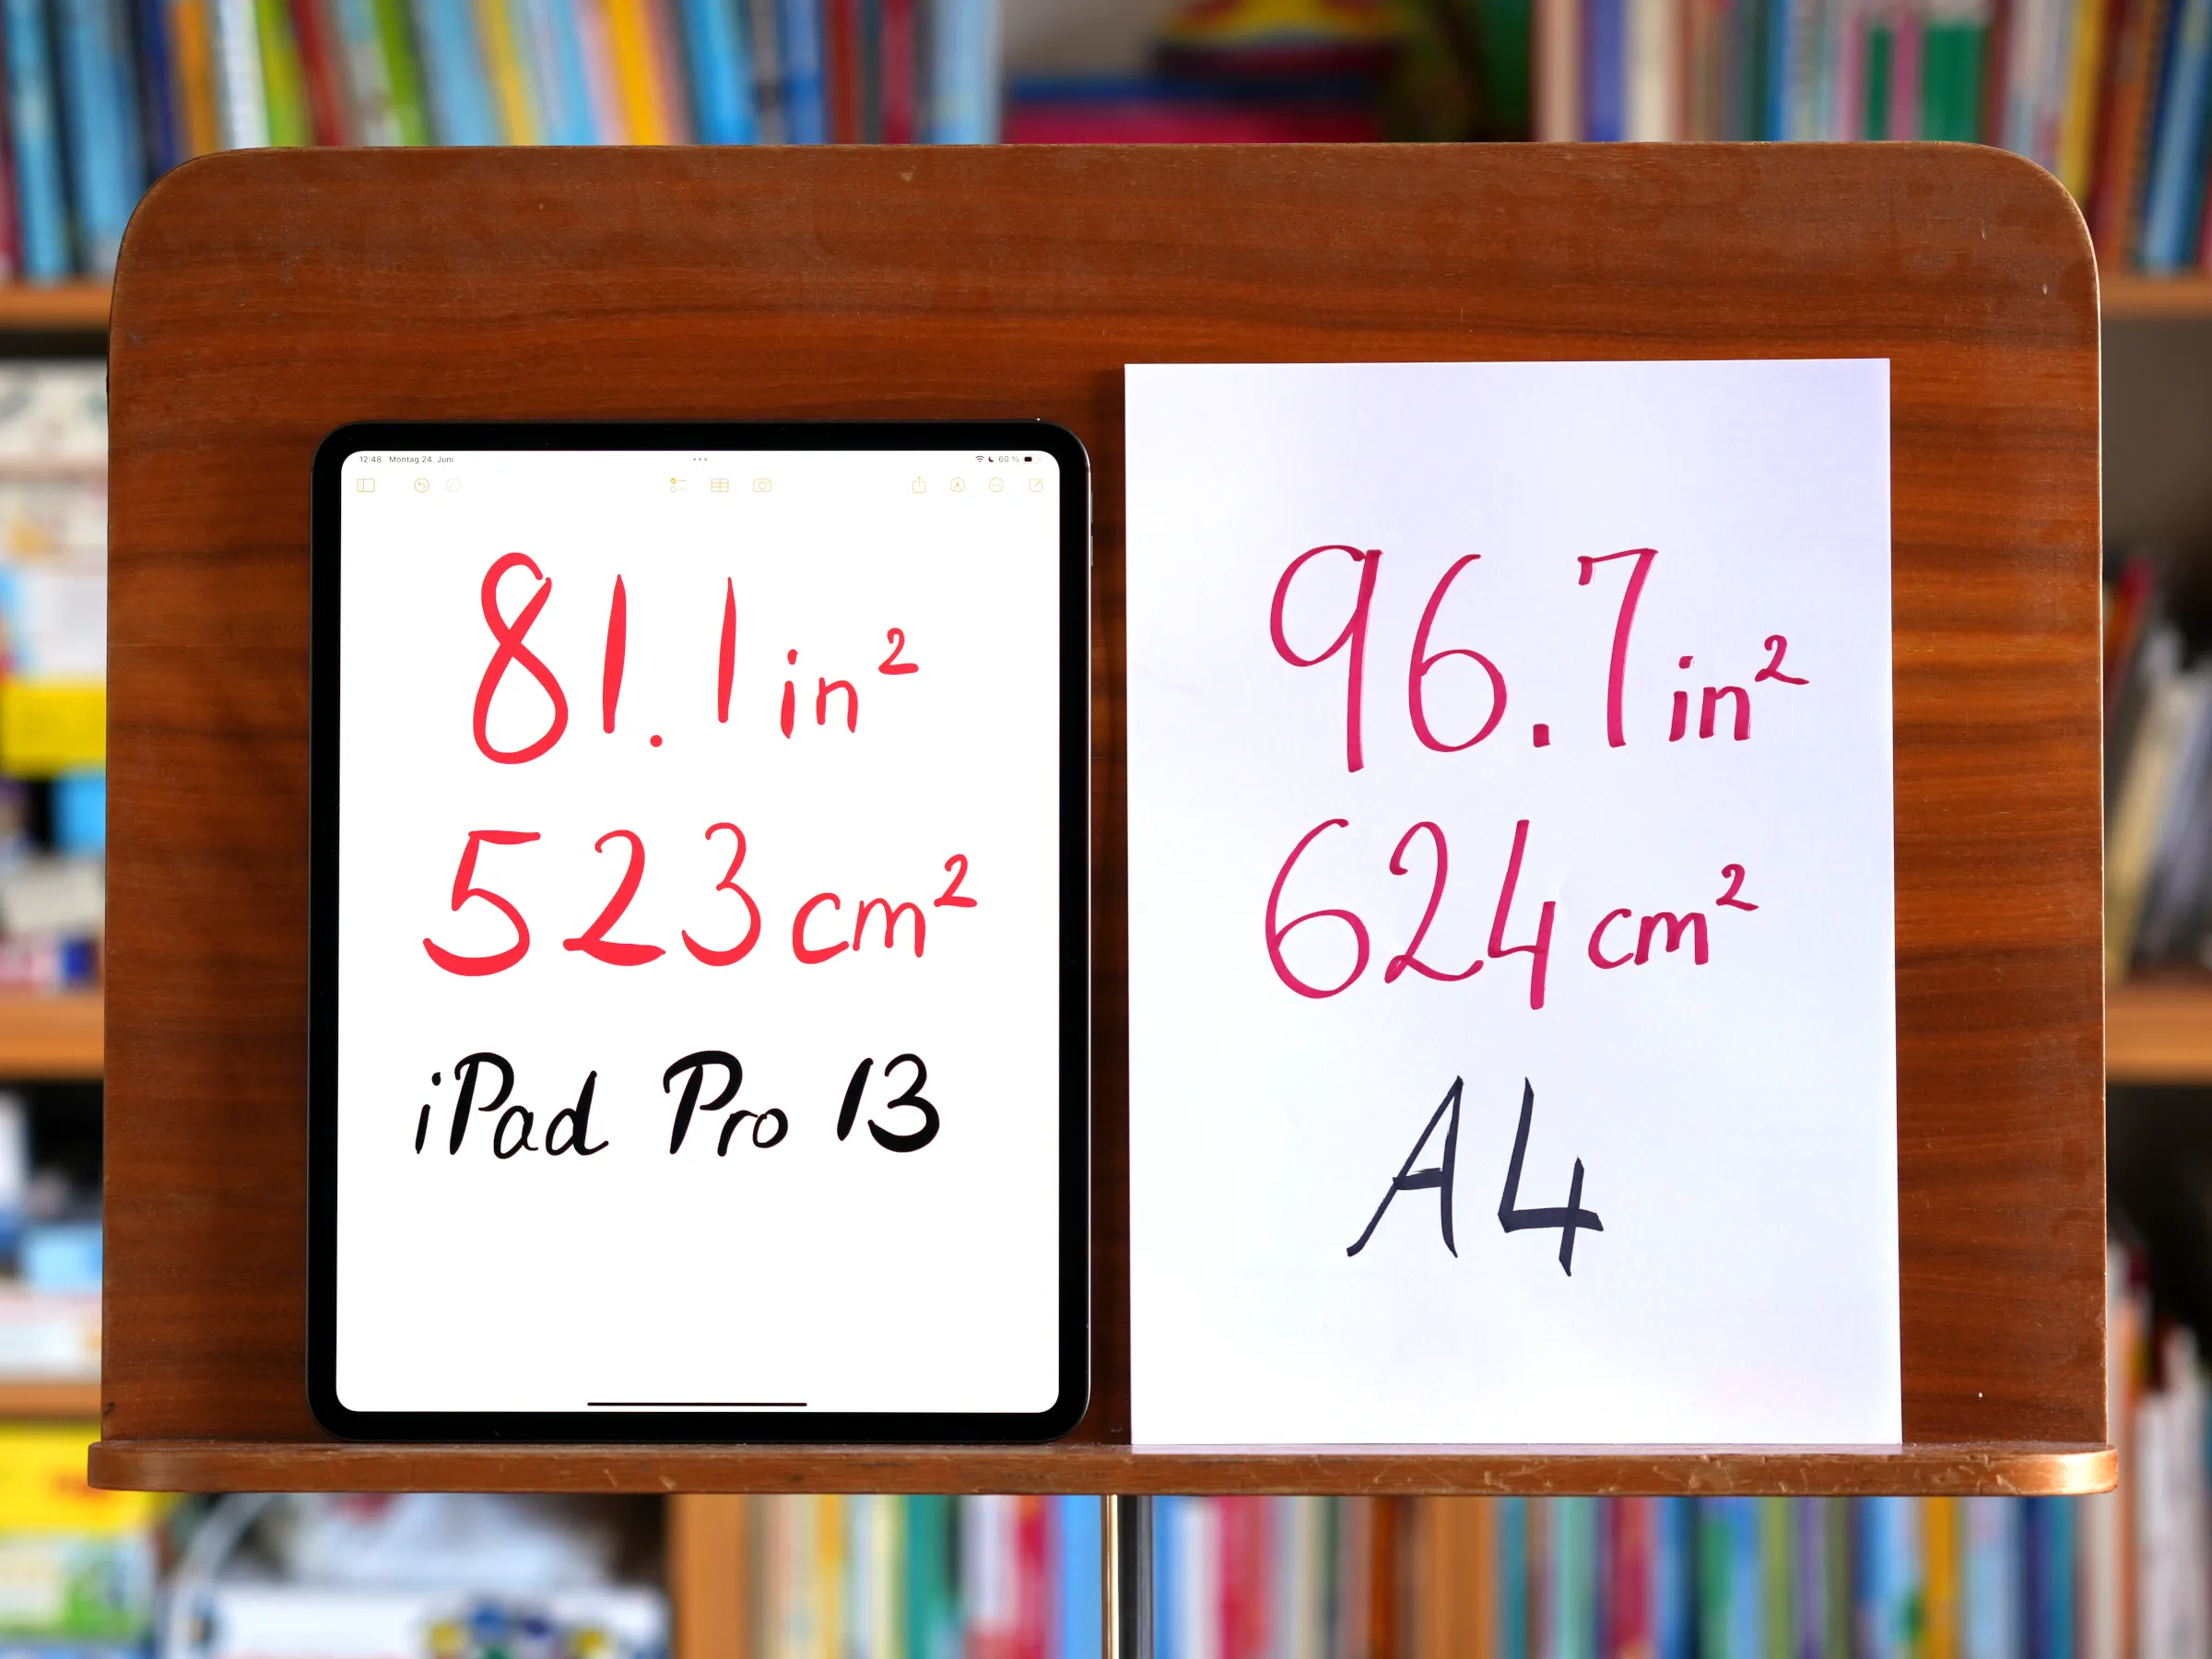 12:48 Montag 24. Juni
60 %
81.1 in²
523 cm²
iPad Pro 13
96.7 in²
624 cm²
A4